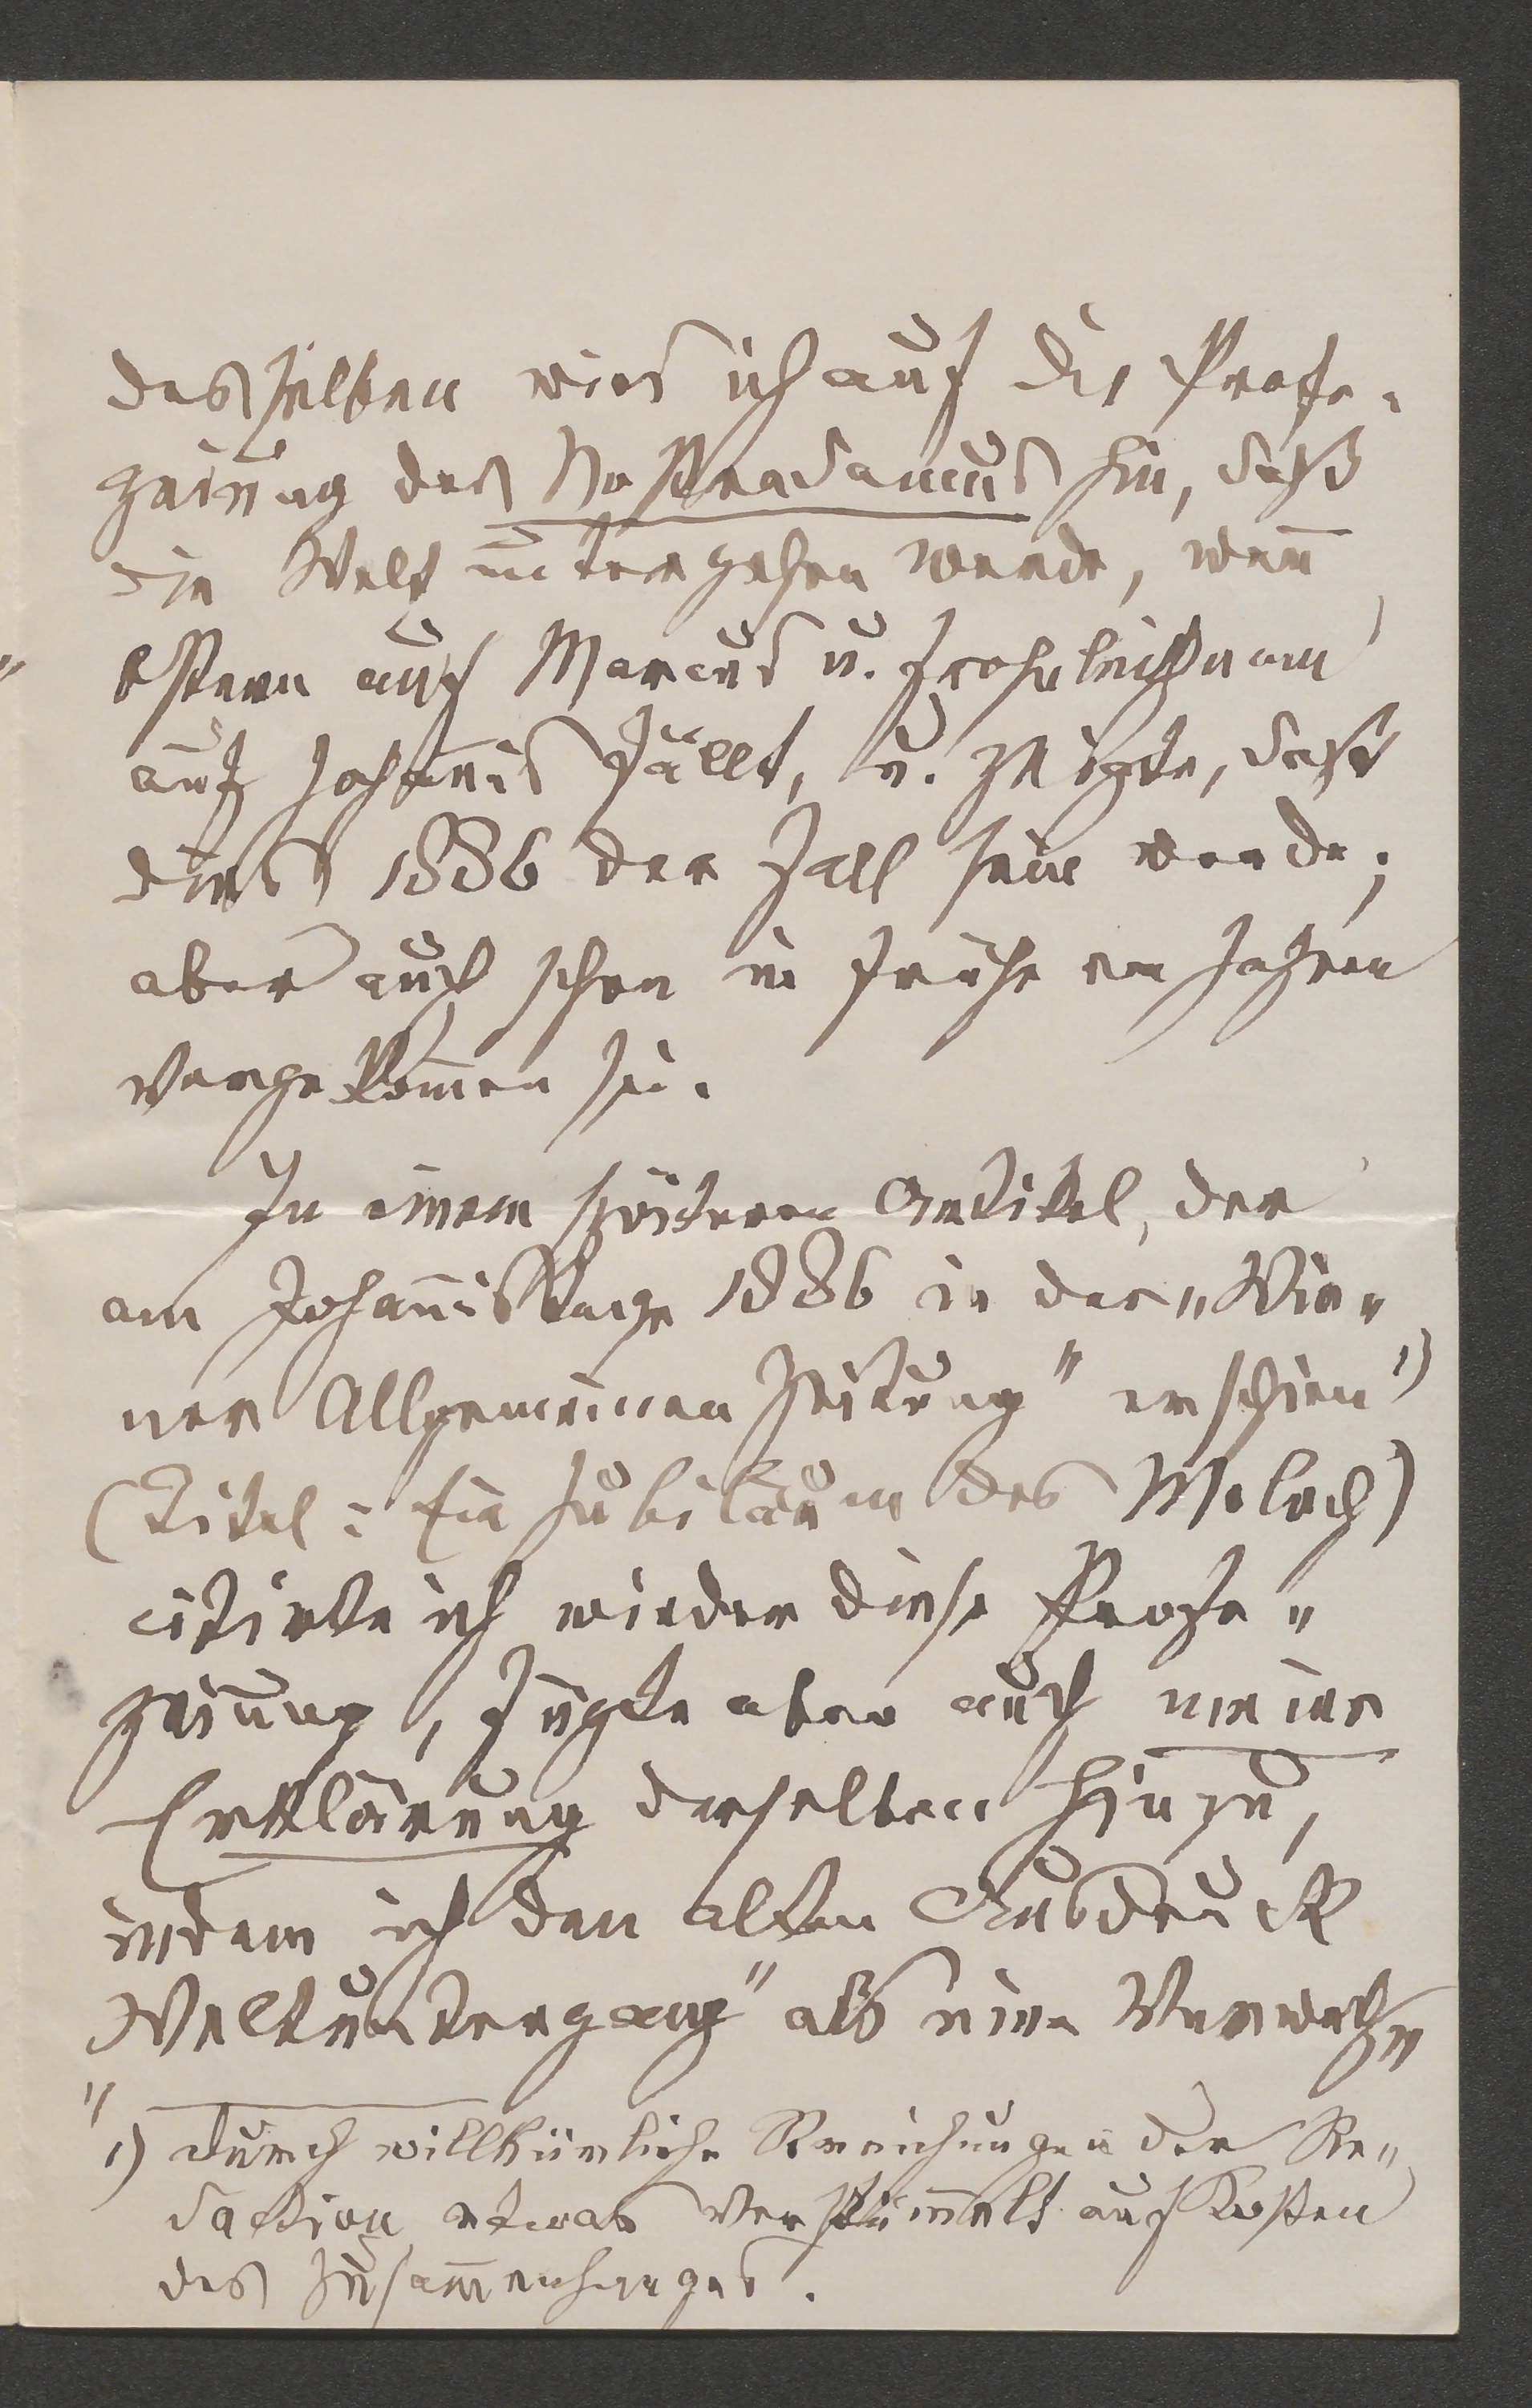 desselben wies ich auf die Profe-
zeiung des Nostradamus hin, daß
die Welt untergehen werde, wenn̄
Ostern auf Marcus u. Frohnleichnam
auf Johannis fällt, u. zeigte, daß
dieß 1886 der Fall sein werde;
aber auch schon in früheren Jahren
vorgekom̄en sei.
In einem späteren Artikel, der
am Johan̄istage 1886 in der „Wie-
ner Allgemeinen Zeitung" erschien ¹)
(Titel: Ein Jubiläum des Moloch)
citirte ich wieder diese Profe-
zeiung, fügte aber auch meine
Erklärung derselben hinzu,
indem ich den alten Ausdruck
„Weltuntergang" als eine Verwechs-
¹) Durch willkürliche Streichungen der Re-
daction etwas verstüm̄elt auf Kosten
des Zusam̄enhanges.